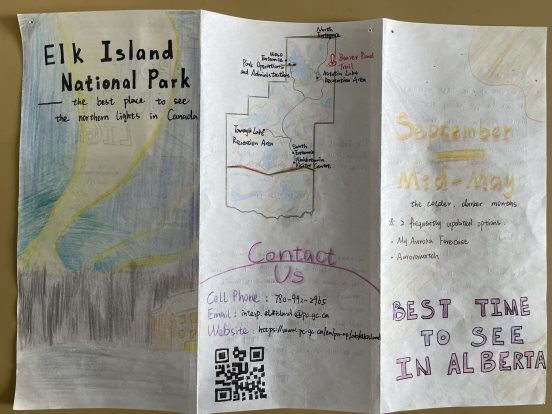 Elk Island
National Park
— the best place to see
the northern lights in Canada
North
Entrance
West
Entrance
Park Operations
and Administration
Beaver Pond
Trail
Astotin Lake
Recreation Area
Tawayik Lake
Recreation Area
South
Entrance
Visitor Centre
Contact
Us
Cell Phone : 780-992-2965
Email : interp.elkisland@pc.gc.ca
Website :
September
Mid-May
the colder, darker months
2 frequently updated options:
• My Aurora Forecast
• Aurorawatch
BEST TIME
TO SEE
IN ALBERTA